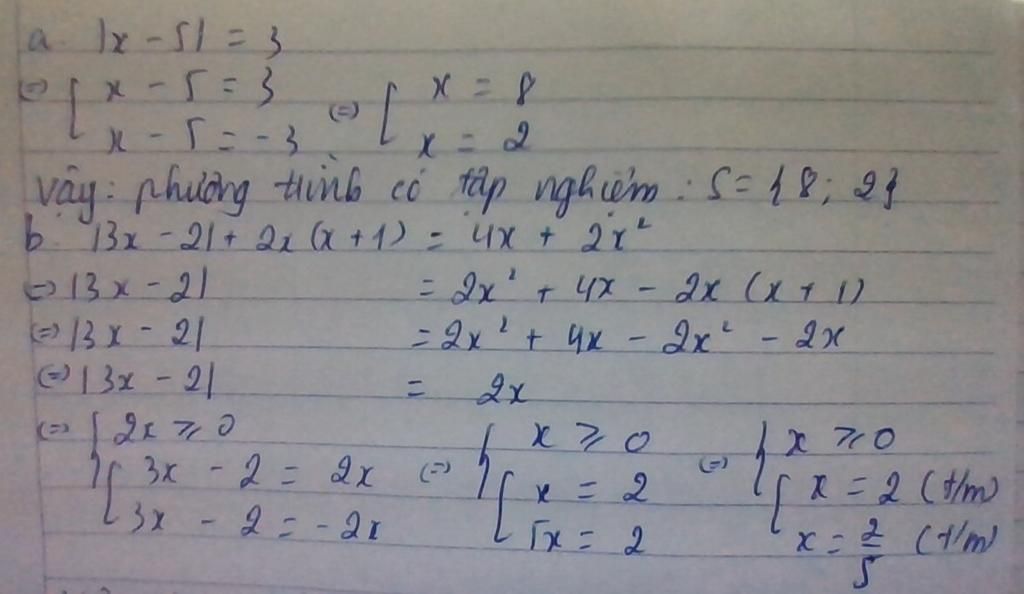 a. |x - 5| = 3
(=) [ x - 5 = 3 (=) [ x = 8
x - 5 = -3 x = 2
Vậy: phương trình có tập nghiệm: S = {8; 2}
b. |3x - 2| + 2x(x + 1) = 4x + 2x²
(=) |3x - 2| = 2x² + 4x - 2x (x + 1)
(=) |3x - 2| = 2x² + 4x - 2x² - 2x
(=) |3x - 2| = 2x
(=) { 2x ≥ 0 { x ≥ 0 { x ≥ 0
[ 3x - 2 = 2x (=) [ x = 2 (=) [ x = 2 (t/m)
3x - 2 = -2x 5x = 2 x = 2/5 (t/m)